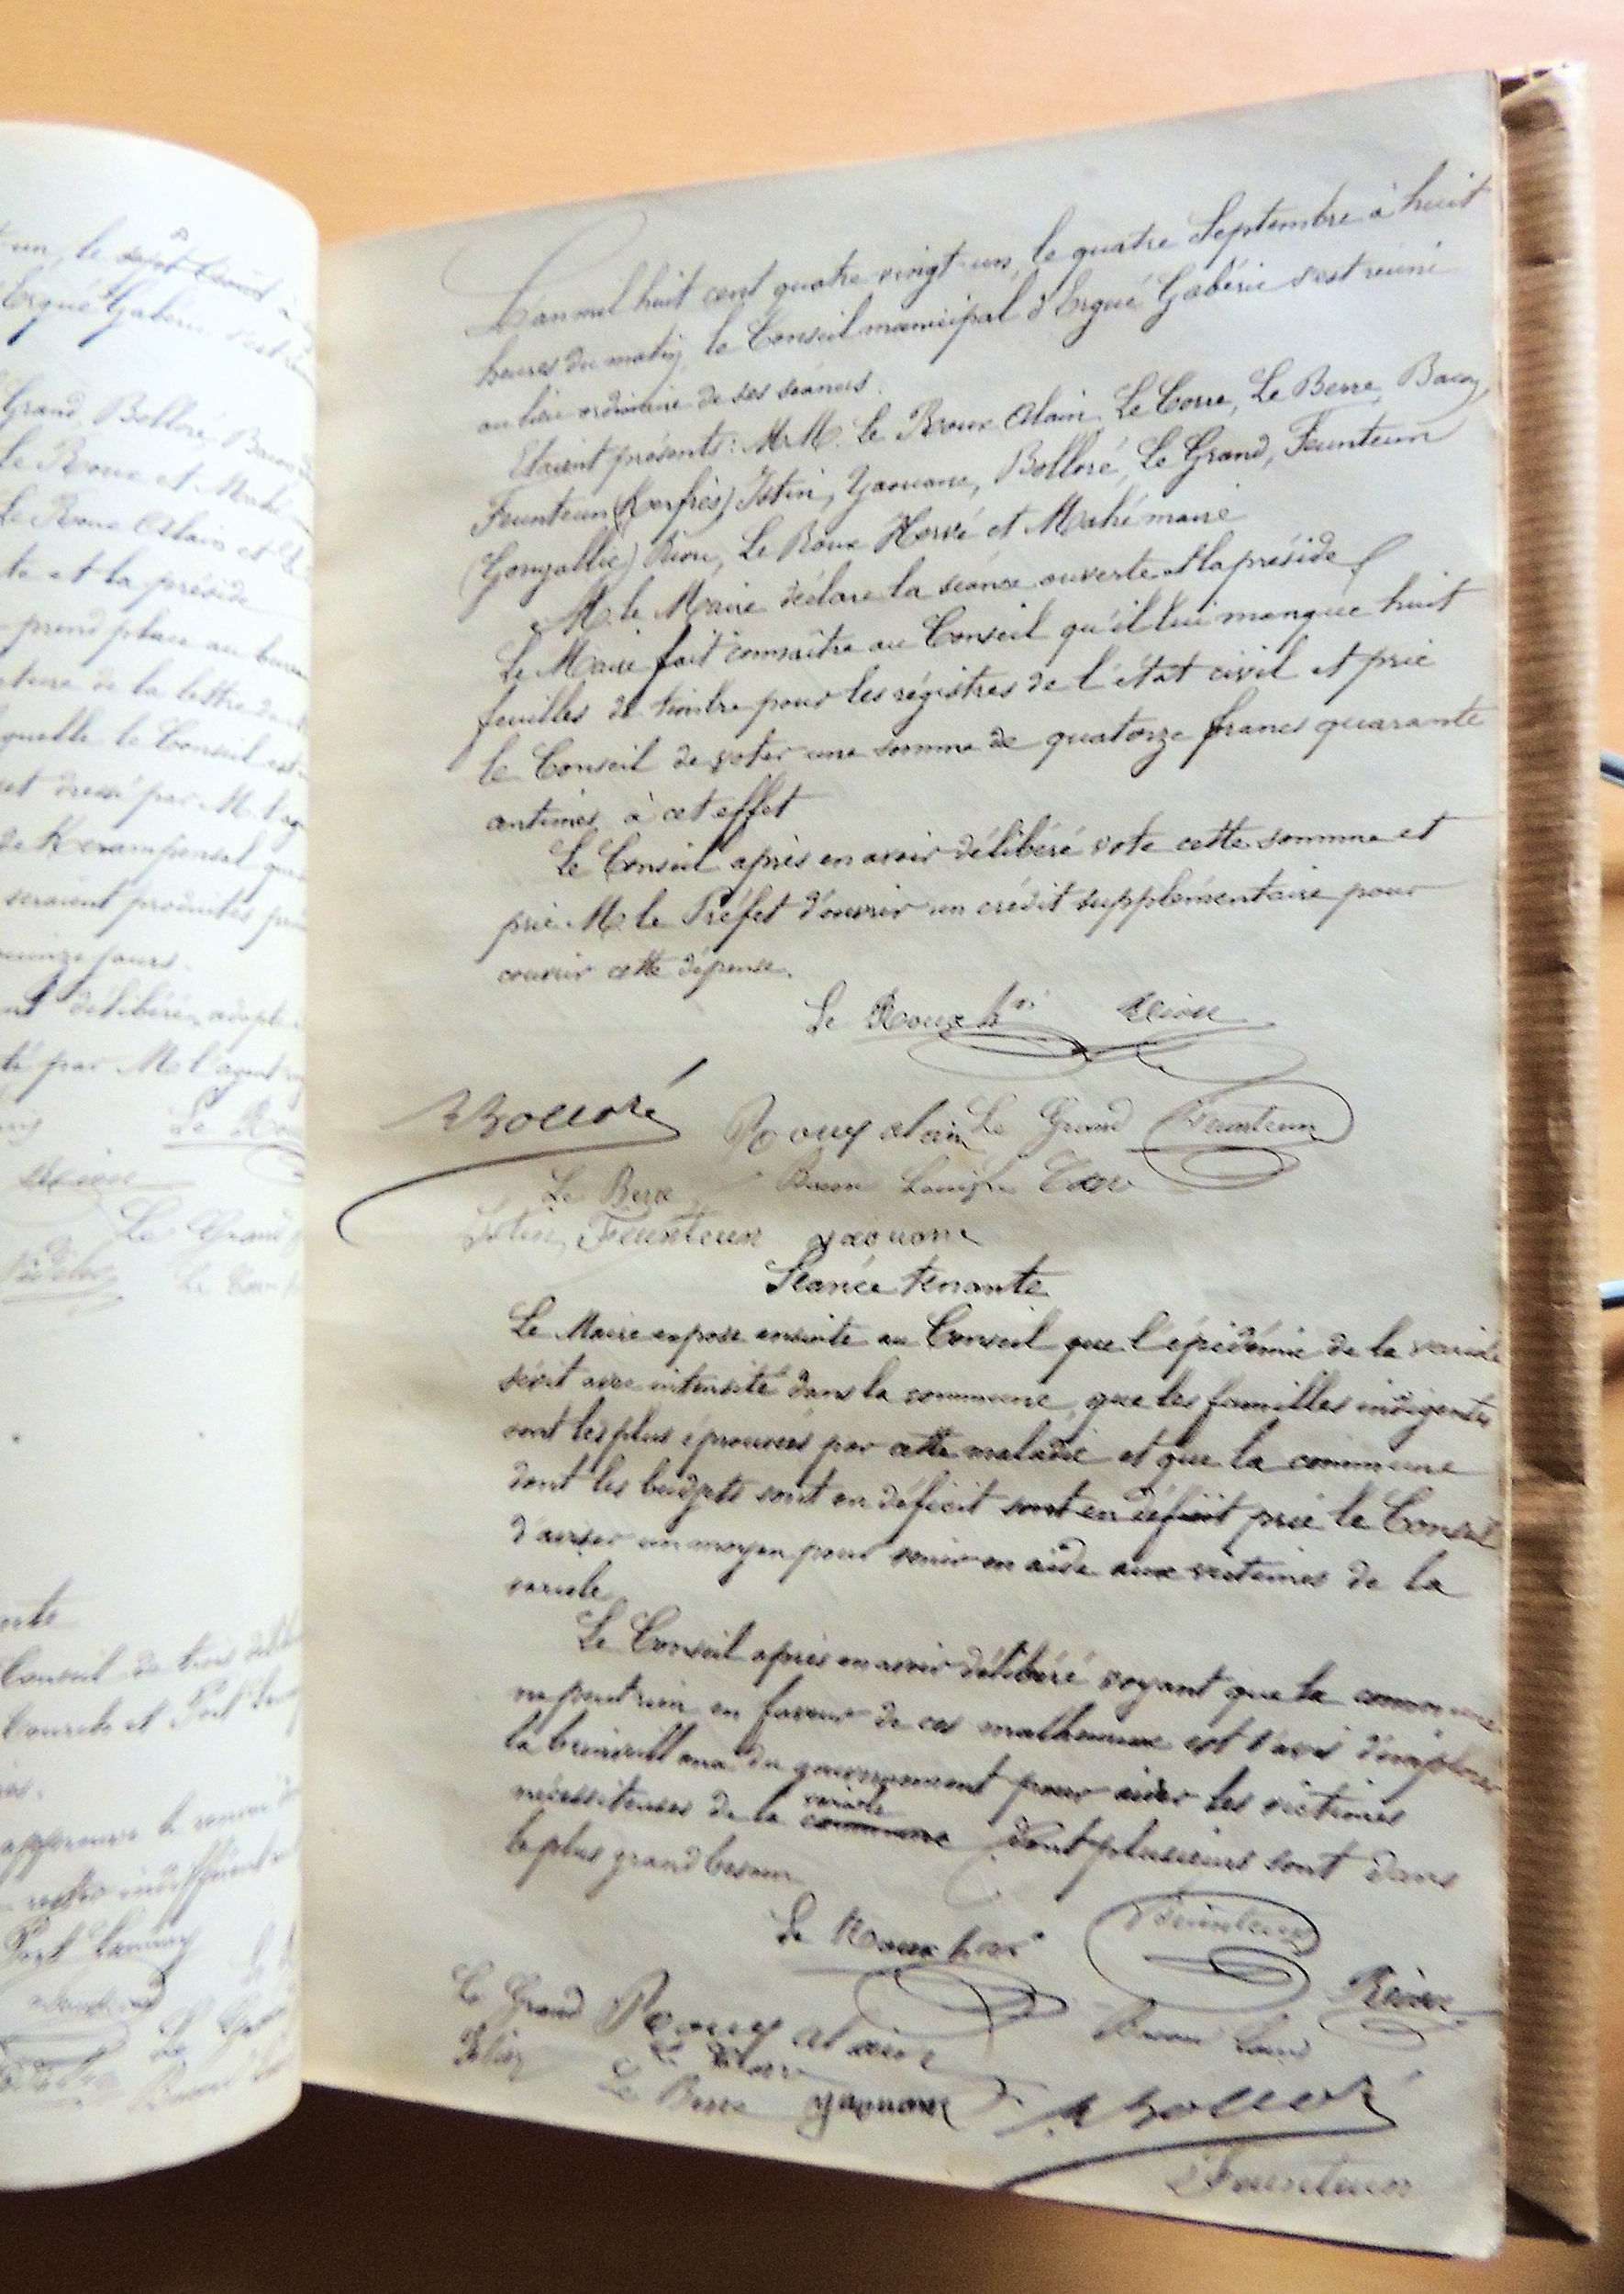 un, le sept Août à
Ergué Gabéric s'est réuni
Grand, Bolloré, Bacon
Le Roux et Mahé
Le Roux Alain et
te et la préside
prend place au bureau
lecture de la lettre de M.
laquelle le Conseil est
et dressé par M. l'ag
de Kerampensal que
seraient produites pen
quinze jours.
nt délibéré, adopte
té par M. l'agent
Le Rou
Le Grand
nte
Conseil de trois
Courcho et Port Lau
approuve le
rester indifférent
Port Launay
L'an mil huit cent quatre vingt-un, le quatre Septembre à huit
heures du matin, le Conseil municipal d'Ergué Gabéric s'est réuni
au lieu ordinaire de ses séances.
Etaient présents: M.M. Le Roux Alain, Le Corre, Le Berre, Bacon,
Feunteun (Kerfrès) Istin, Yaouanc, Bolloré, Le Grand, Feunteun
(Gongallic) Riou, Le Roux Hervé et Mahé maire
M. le Maire déclare la séance ouverte et la préside
Le Maire fait connaître au Conseil qu'il lui manque huit
feuilles de timbre pour les régistres de l'état civil et prie
le Conseil de voter une somme de quatorze francs quarante
centimes à cet effet
Le Conseil après en avoir délibéré vote cette somme et
prie M. le Préfet d'ouvrir un crédit supplémentaire pour
couvrir cette dépense.
Le Roux hvé Riou
Bolloré Roux alain Le Grand Feunteun
Le Berre Bacon
Istin Feunteun yaouanc
Séance tenante
Le Maire expose ensuite au Conseil que l'épidémie de la variole
sévit avec intensité dans la commune, que les familles indigentes
sont les plus éprouvées par cette maladie et que la commune
dont les budjets sont en déficit sont en déficit prie le Conseil
d'aviser un moyen pour venir en aide aux victimes de la
variole
Le Conseil après en avoir délibéré voyant que la commune
ne peut rien en faveur de ces malheureux est d'avis d'implorer
la bienveillance du gouvernement pour aider les victimes
variole
nécessiteuses de la commune dont plusieurs sont dans
le plus grand besoin
Le Roux hvé Feunteun
Le Grand Roux alain Riou
Istin Bacon
Le Berre yaouanc Bolloré
Feunteun